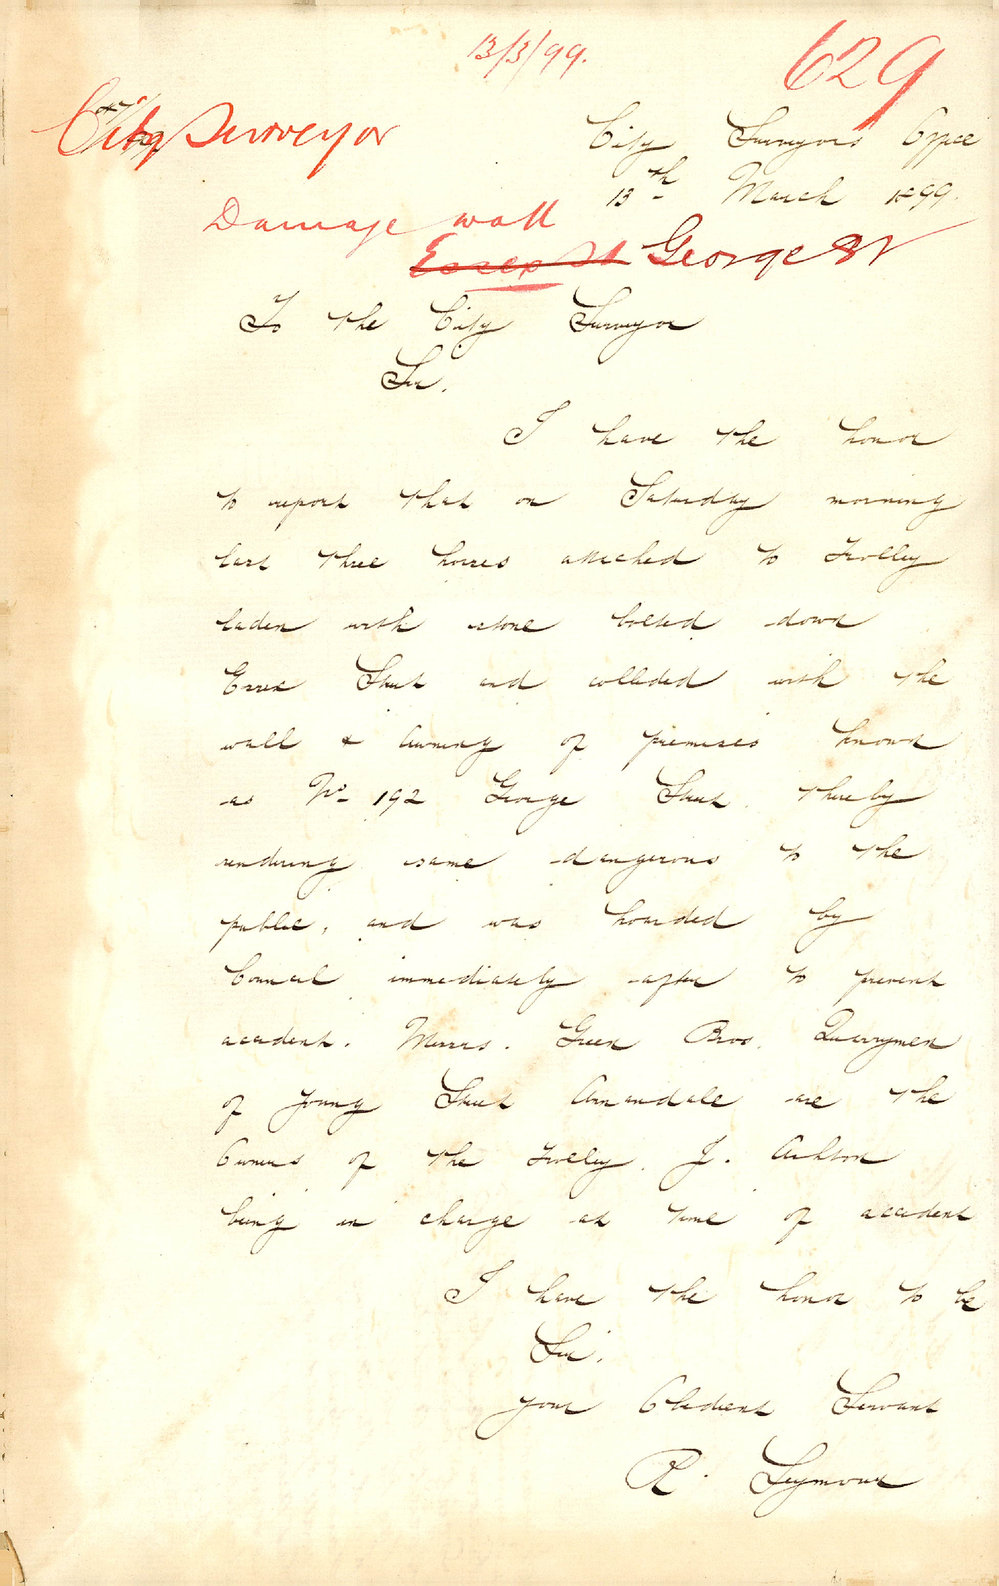 13/3/99.
629
City Surveyor
City Surveyors Office
13th March 1899.
Damage wall
Essex St George St
To the City Surveyor
Sir.
I have the honor
to report that on Saturday morning
last three horses attached to Trolley
laden with stone bolted down
Essex Street and collided with the
wall & Awning of premises known
as No 192 George Street thereby
rendering same dangerous to the
public, and was hoarded by
Council immediately after to prevent
accident. Messrs. Green Bros. Quarrymen
of Young Street Annandale are the
Owners of the Trolley. J. Ashton
being in charge at time of accident
I have the honor to be
Sir.
your Obedient Servant
R. Seymour